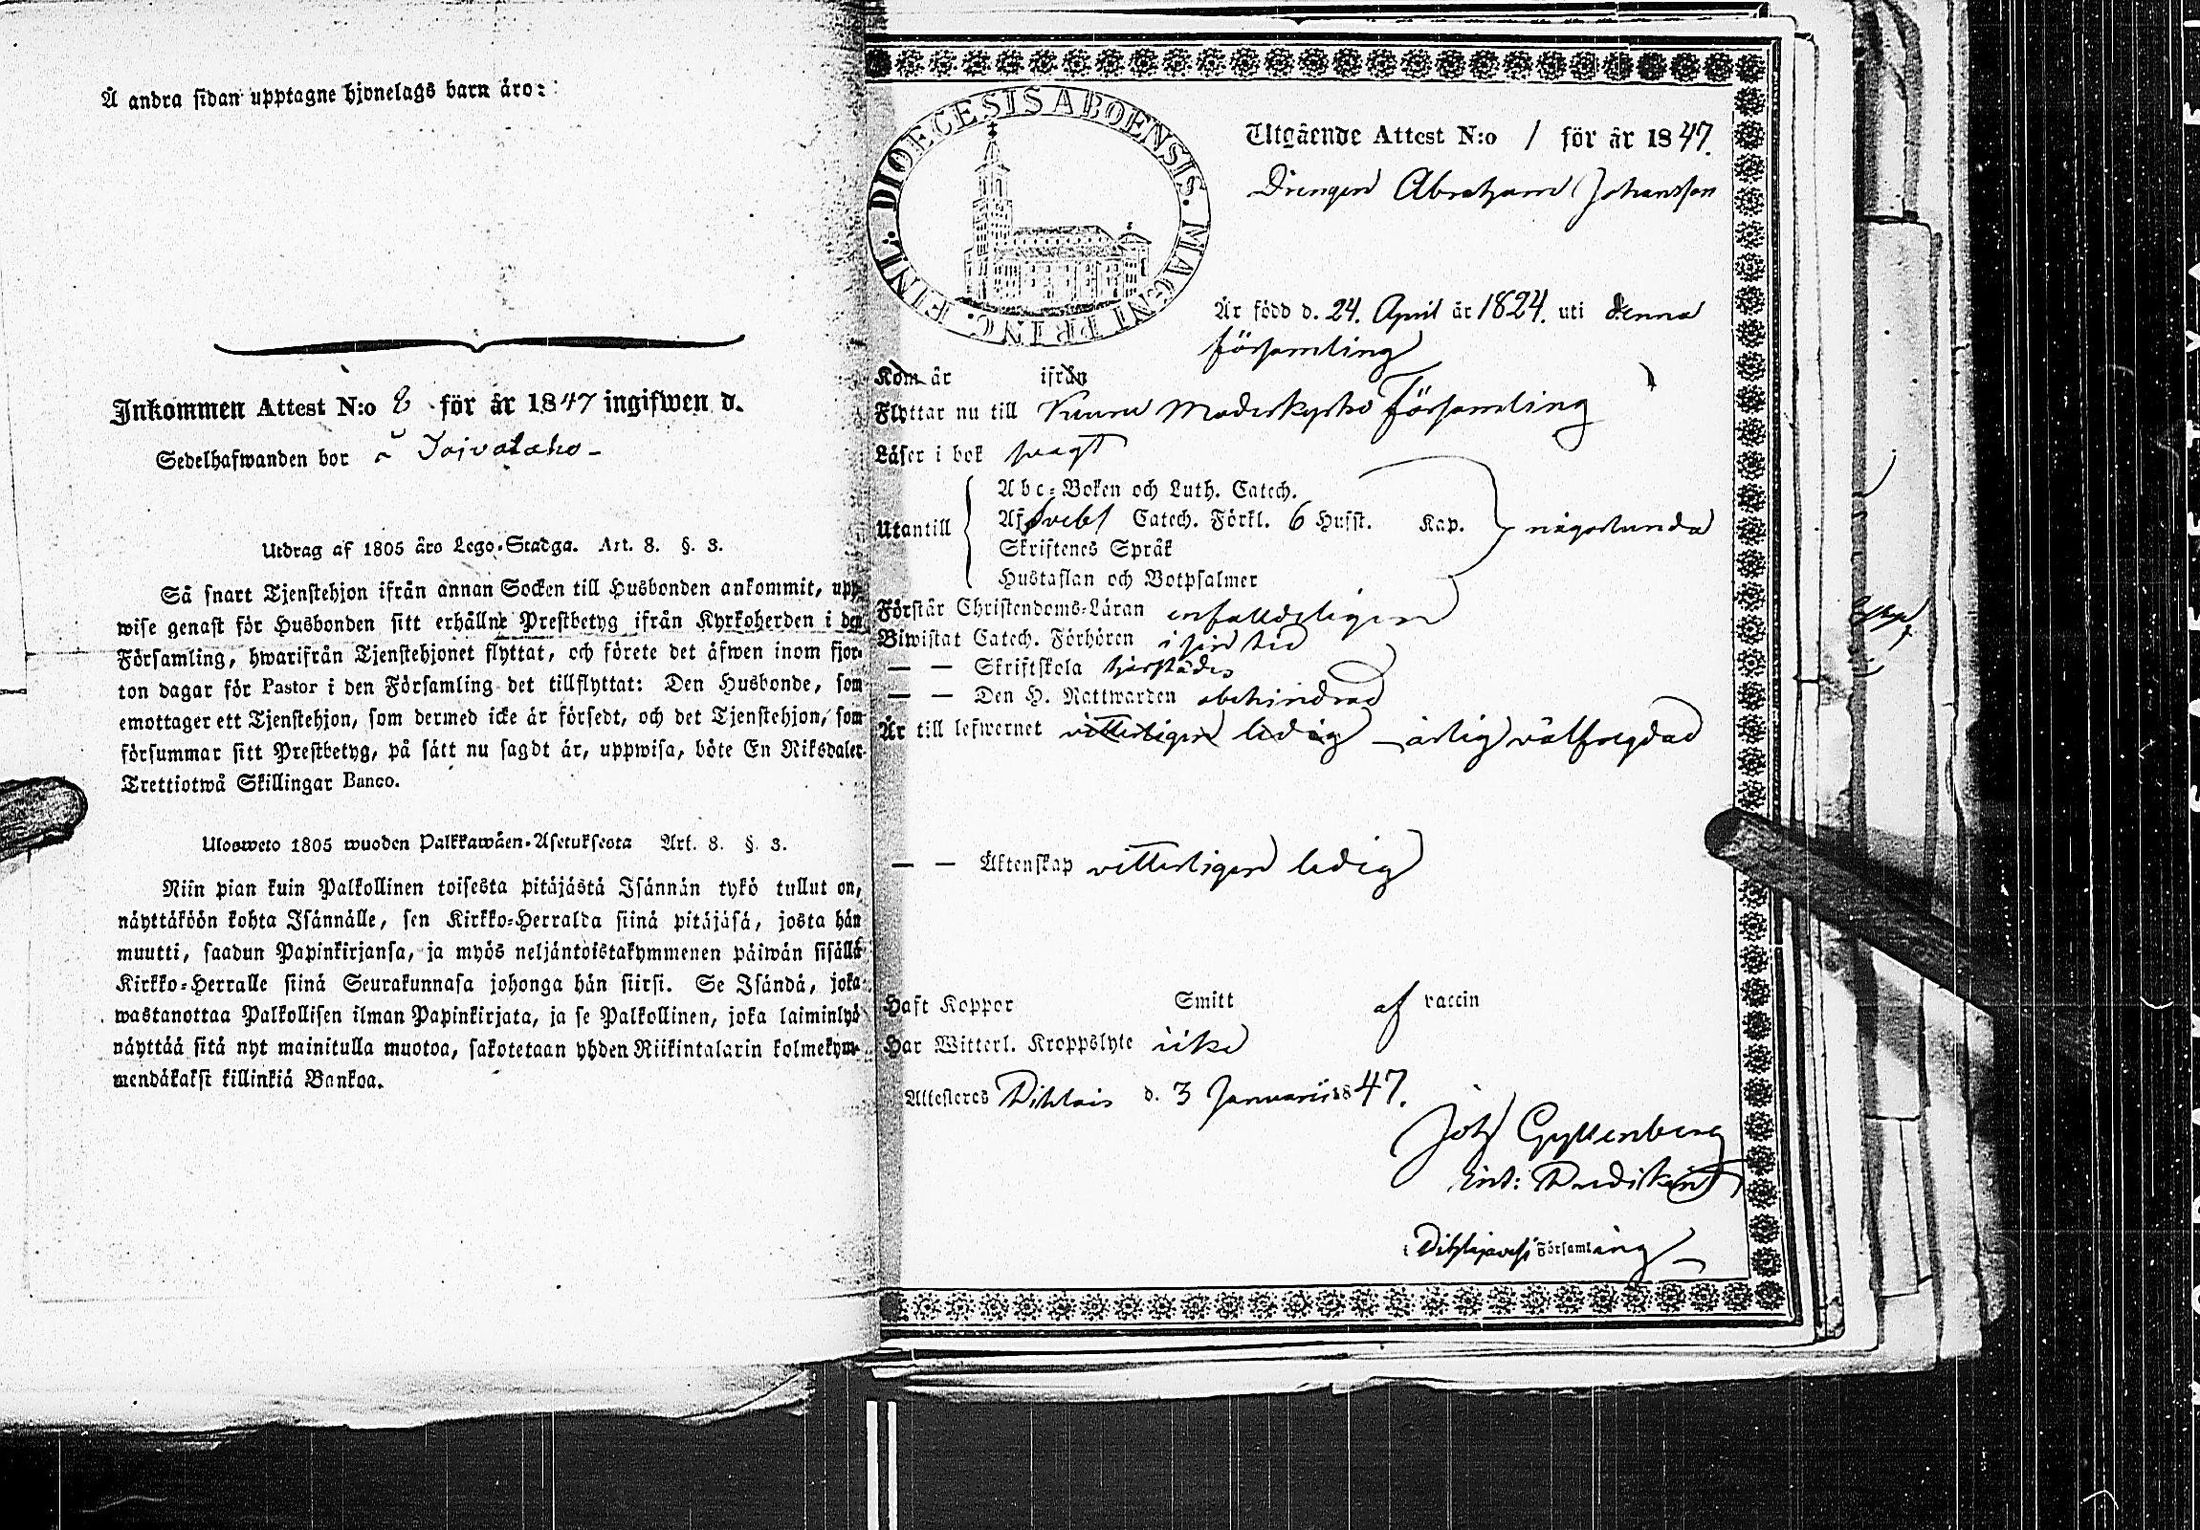 Å andra sidan upptagne hjonelags barn äro:
Inkommen Attest N:o 8 för år 1847 ingifwen d.
Sedelhafwanden bor å
Utdrag af 1805 års Lego-Stadga. Art. 8. §. 3.
Så snart Tjenstehjon ifrån annan Socken till Husbonden ankommit, upp-
wise genast för Husbonden sitt erhållne Prestbetyg ifrån Kyrkoherden i den
Församling, hwarifrån Tjenstehjonet flyttat, och förete det äfwen inom fjor-
ton dagar för Pastor i den Församling det tillflyttat: Den Husbonde, som
emottager ett Tjenstehjon, som dermed icke är försedt, och det Tjenstehjon, som
försummar sitt Prestbetyg, på sätt nu sagdt är, uppwisa, böte En Riksdaler
Trettiotwå Skillingar Banco.
Ulosweto 1805 wuoden Palkkawäen-Asetuksesta Art. 8. §. 3.
Niin pian kuin Palkollinen toisesta pitäjästä Isännän tykö tullut on,
näyttäköön kohta Isännälle, sen Kirkko-Herralda siinä pitäjäsä, josta hän
muutti, saadun Papinkirjansa, ja myös neljäntoistakymmenen päiwän sisällä
Kirkko-Herralle siinä Seurakunnasa johonga hän siirsi. Se Isändä, joka
wastanottaa Palkollisen ilman Papinkirjata, ja se Palkollinen, joka laiminlyö
näyttää sitä nyt mainitulla muotoa, sakotetaan yhden Riikintalarin kolmekym-
mendäkaksi killinkiä Bankoa.
DIOECESIS ABOENSIS. MAGNI PRINC. FINL:
Utgående Attest N:o 1 för år 1847.
Drengen Abraham Johansson
Är född d. 24. April år 1824. uti denna
församling
Kom år ifrån
Flyttar nu till Keuru Moderkyrko Församling
Läser i bok
Abc-Boken och Luth. Catech.
Utantill Af Svebel Catech. Förkl. 6 Husst. Kap. någorlunda
Skriftenes Språk
Hustaflan och Botpsalmer
Förstår Christendoms-Läran enfalldeligen
Biwistat Catech. Förhören i sin tid
— — Skriftskola härstädes
— — Den H. Nattwarden obehindrad
Är till lefwernet vitterligen ledig ärlig välfrejdad
— — Äktenskap vitterligen ledig
Haft Koppor Smitt af vaccin
Har Witterl. Kroppslyte icke
Attesteres Pihlais d. 3 Januarii 1847.
Joh Gyllenberg
Predikant
i Pihlajavesi Församling